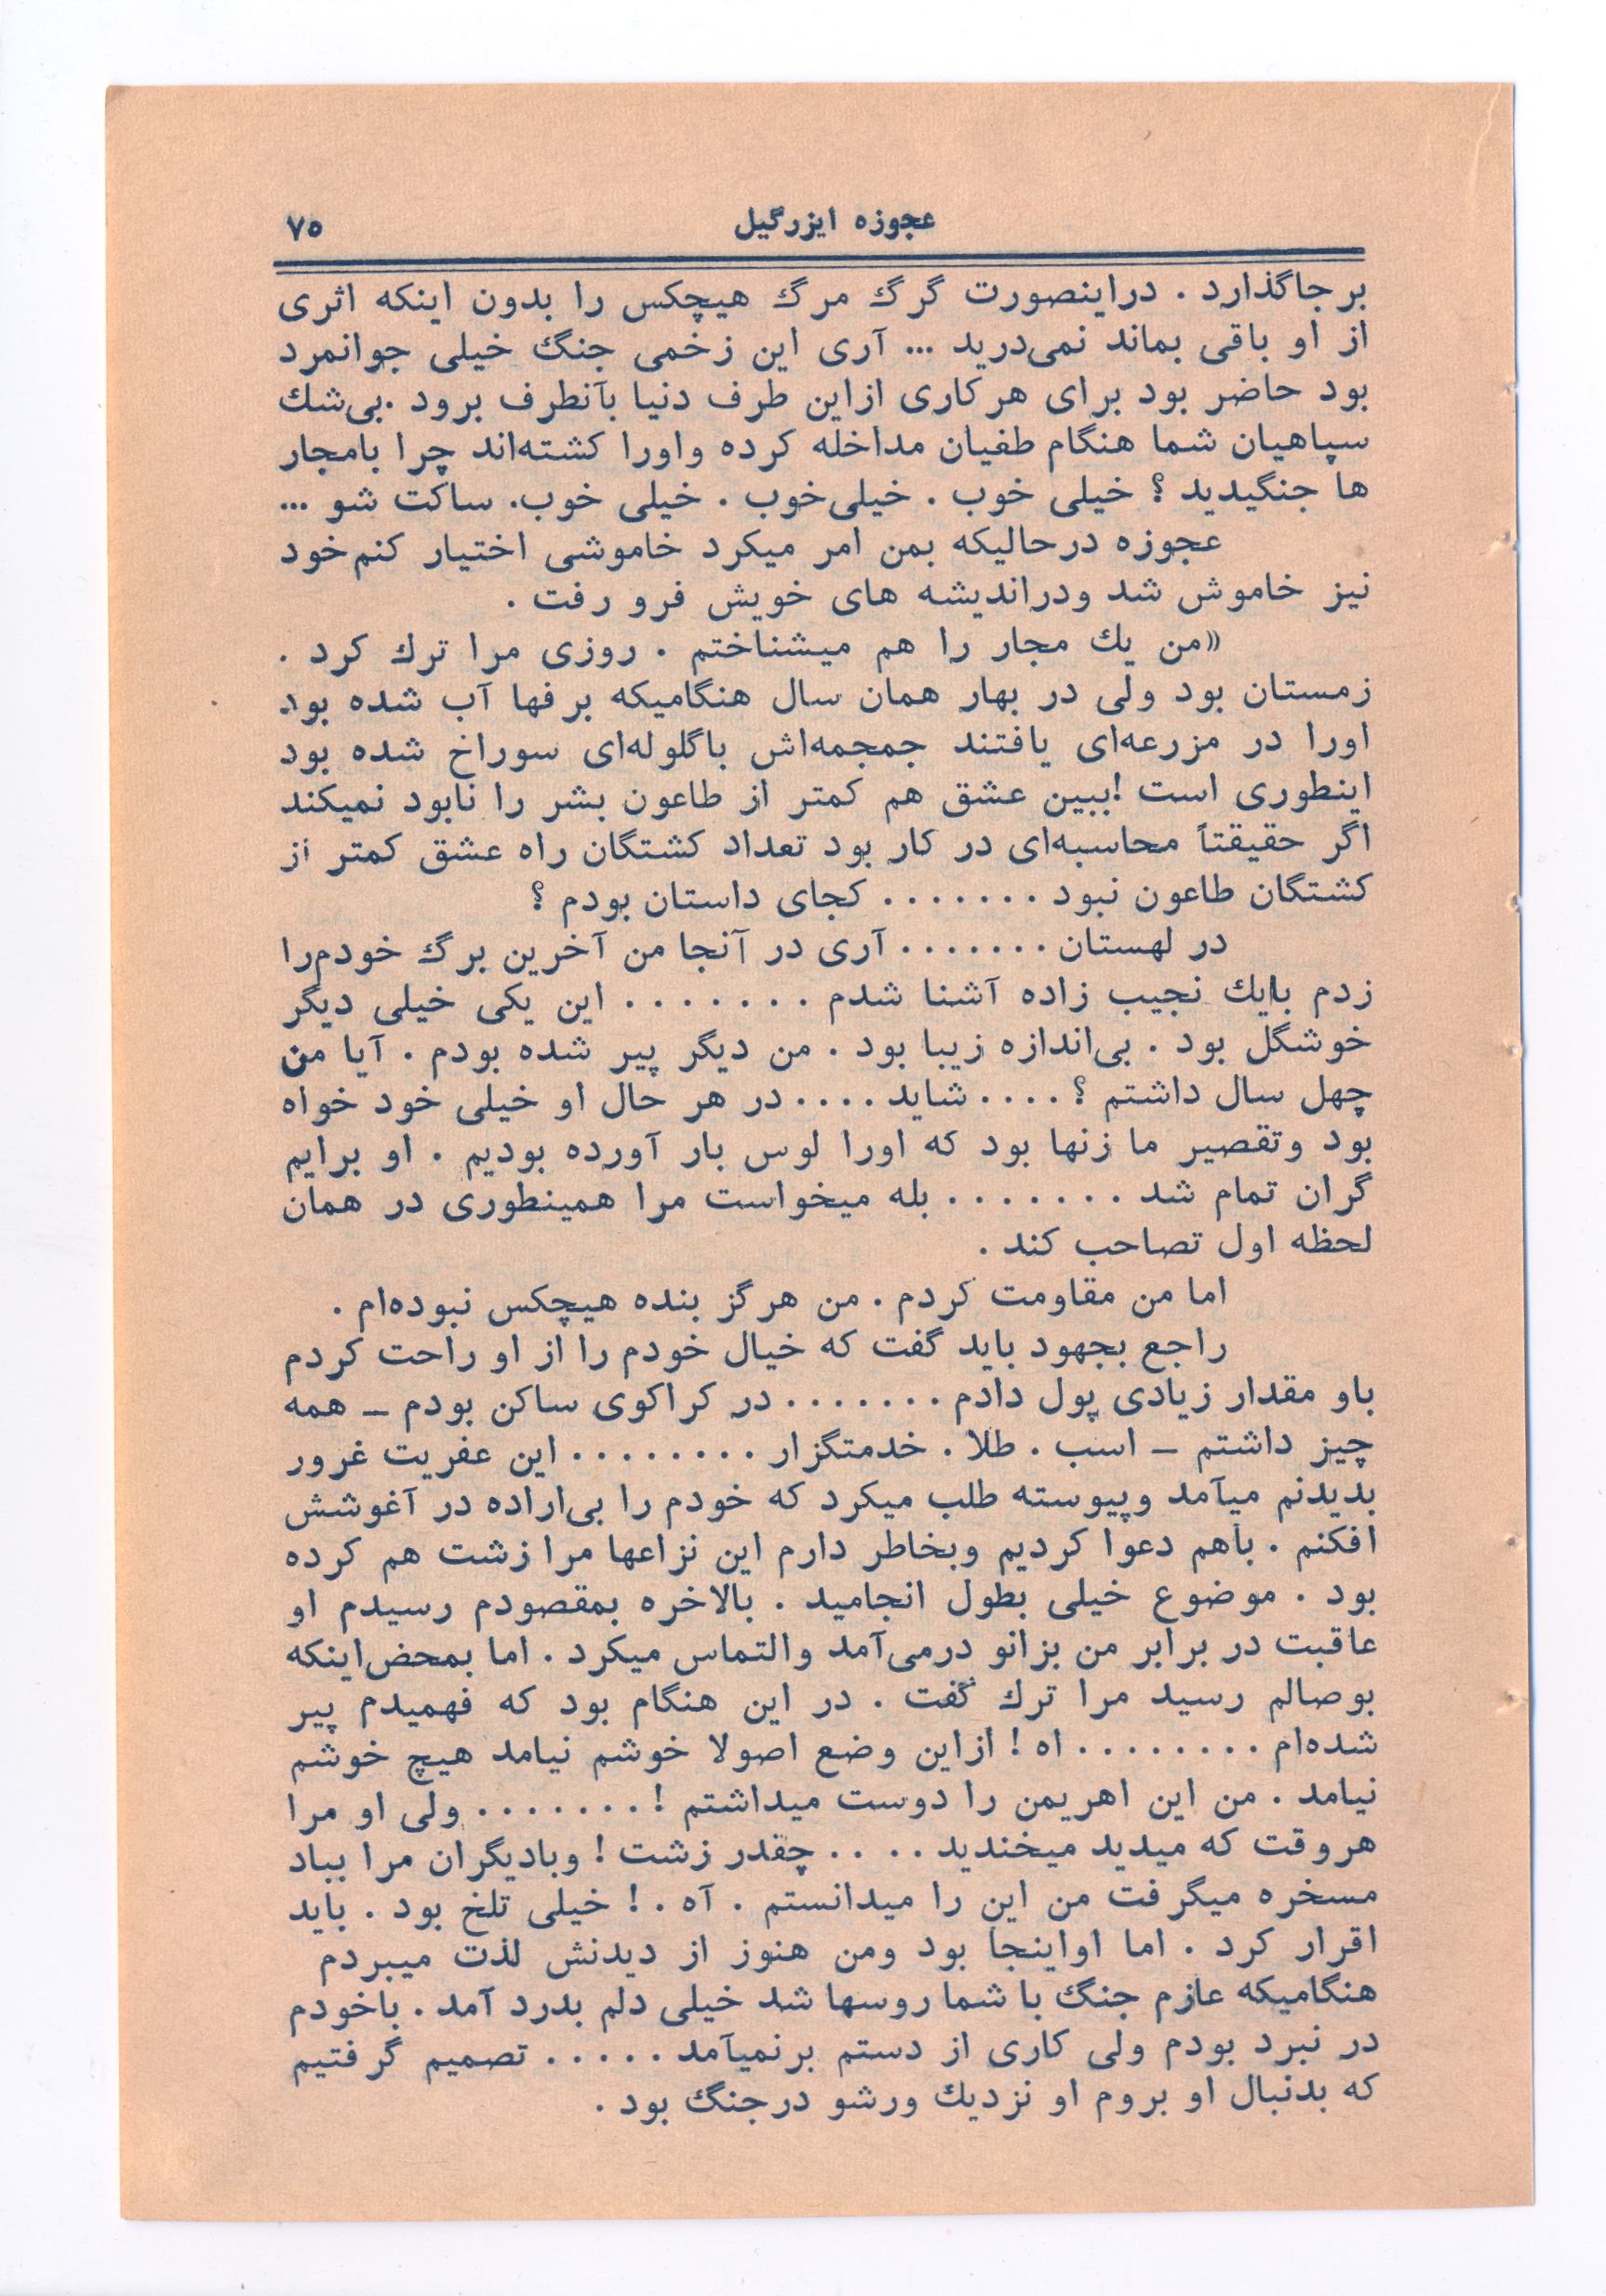 عجوزه ایزرگیل ۷۵
برجاگذارد . دراینصورت گرگ مرگ هیچکس را بدون اینکه اثری
از او باقی بماند نمی‌درید ... آری این زخمی جنگ خیلی جوانمرد
بود حاضر بود برای هرکاری ازاین طرف دنیا بآنطرف برود .بی‌شك
سپاهیان شما هنگام طغیان مداخله کرده واورا کشته‌اند چرا بامجار
ها جنگیدید ؟ خیلی خوب . خیلی‌خوب . خیلی خوب. ساکت شو ...
عجوزه درحالیکه بمن امر میکرد خاموشی اختیار کنم‌خود
نیز خاموش شد ودراندیشه های خویش فرو رفت .
«من یك مجار را هم میشناختم . روزی مرا ترك کرد .
زمستان بود ولی در بهار همان سال هنگامیکه برفها آب شده بود
اورا در مزرعه‌ای یافتند جمجمه‌اش باگلوله‌ای سوراخ شده بود
اینطوری است !ببین عشق هم کمتر از طاعون بشر را نابود نمیکند
اگر حقیقتاً محاسبه‌ای در کار بود تعداد کشتگان راه عشق کمتر از
کشتگان طاعون نبود ....... کجای داستان بودم ؟
در لهستان ....... آری در آنجا من آخرین برگ خودم‌را
زدم بایك نجیب زاده آشنا شدم ....... این یکی خیلی دیگر
خوشگل بود . بی‌اندازه زیبا بود . من دیگر پیر شده بودم . آیا من
چهل سال داشتم ؟ .... شاید .... در هر حال او خیلی خود خواه
بود وتقصیر ما زنها بود که اورا لوس بار آورده بودیم . او برایم
گران تمام شد ....... بله میخواست مرا همینطوری در همان
لحظه اول تصاحب کند .
اما من مقاومت کردم . من هرگز بنده هیچکس نبوده‌ام .
راجع بجهود باید گفت که خیال خودم را از او راحت کردم
باو مقدار زیادی پول دادم ....... در کراکوی ساکن بودم ـ همه
چیز داشتم ـ اسب . طلا . خدمتگزار ........ این عفریت غرور
بدیدنم میآمد وپیوسته طلب میکرد که خودم را بی‌اراده در آغوشش
افکنم . باهم دعوا کردیم وبخاطر دارم این نزاعها مرا زشت هم کرده
بود . موضوع خیلی بطول انجامید . بالاخره بمقصودم رسیدم او
عاقبت در برابر من بزانو درمی‌آمد والتماس میکرد . اما بمحض‌اینکه
بوصالم رسید مرا ترك گفت . در این هنگام بود که فهمیدم پیر
شده‌ام ........ اه ! ازاین وضع اصولا خوشم نیامد هیچ خوشم
نیامد . من این اهریمن را دوست میداشتم ! ....... ولی او مرا
هروقت که میدید میخندید .... چقدر زشت ! وبادیگران مرا بباد
مسخره میگرفت من این را میدانستم . آه . ! خیلی تلخ بود . باید
اقرار کرد . اما اواینجا بود ومن هنوز از دیدنش لذت میبردم
هنگامیکه عازم جنگ با شما روسها شد خیلی دلم بدرد آمد . باخودم
در نبرد بودم ولی کاری از دستم برنمیآمد ..... تصمیم گرفتیم
که بدنبال او بروم او نزدیك ورشو درجنگ بود .